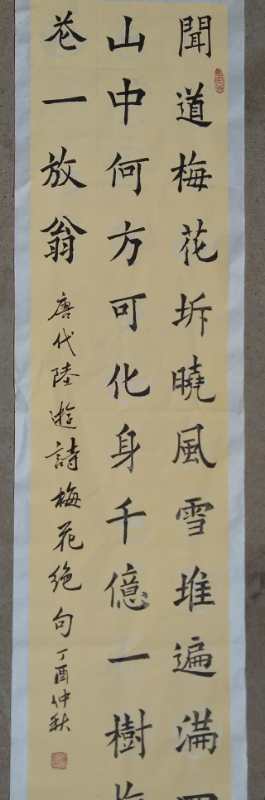 聞道梅花坼曉風雪堆遍滿四
山中何方可化身千億一樹梅
花一放翁
唐代陸遊詩梅花絶句丁酉仲秋